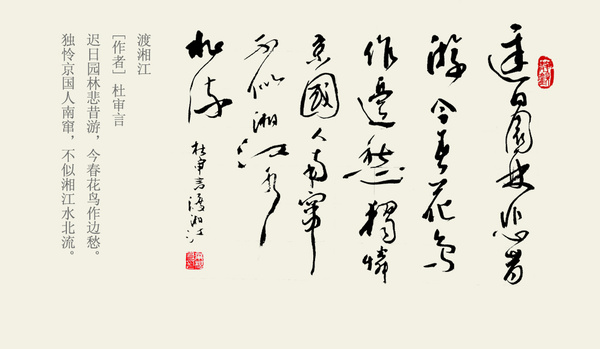 遲日園林悲昔
游今春花鳥
作邊愁獨憐
京國人南竄
不似湘江水
北流
杜審言渡湘江
渡湘江
［作者］杜审言
迟日园林悲昔游，今春花鸟作边愁。
独怜京国人南窜，不似湘江水北流。